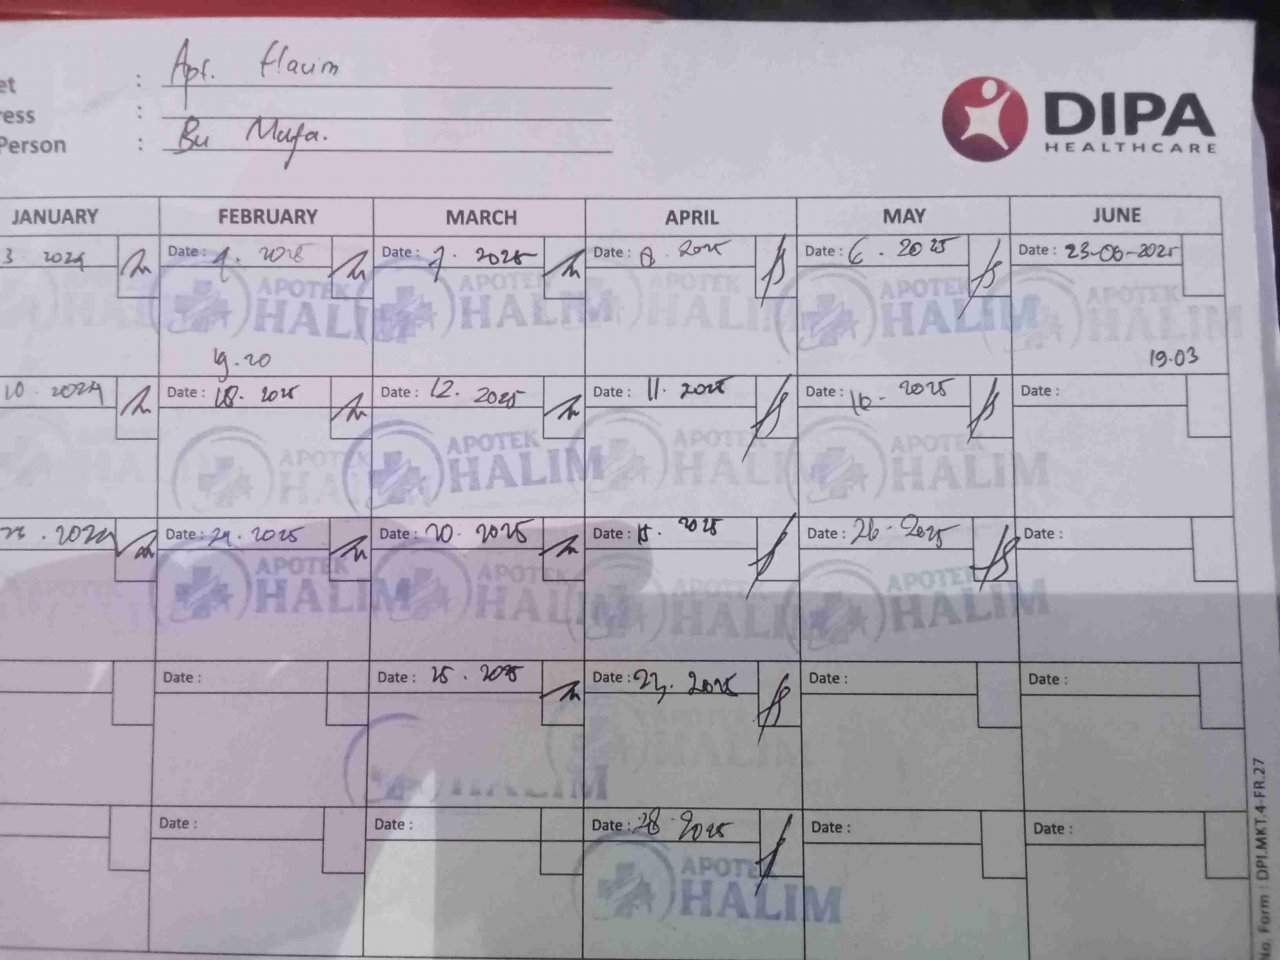 et : Apt. Halim
ress :
Person : Bu Maya.
DIPA
HEALTHCARE
JANUARY FEBRUARY MARCH APRIL MAY JUNE
3 2024 Date : 4. 2025 Date : 7. 2025 Date : 8 2025 Date : 6. 2025 Date : 23-06-2025
APOTEK HALIM APOTEK HALIM APOTEK HALIM APOTEK HALIM APOTEK HALIM
19.20 19.03
10. 2024 Date : 18. 2025 Date : 12. 2025 Date : 11. 2025 Date : 16. 2025 Date :
APOTEK HALIM APOTEK HALIM APOTEK HALIM APOTEK HALIM
. 2024 Date : 24. 2025 Date : 20. 2025 Date : 15. 2025 Date : 26-2025 Date :
APOTEK HALIM APOTEK HALIM APOTEK HALIM APOTEK HALIM
Date : Date : 25. 2025 Date : 23. 2025 Date : Date :
HALIM APOTEK HALIM
Date : Date : Date : 28. 2025 Date : Date :
APOTEK HALIM
No. Form : DPI.MKT.4-FR.27